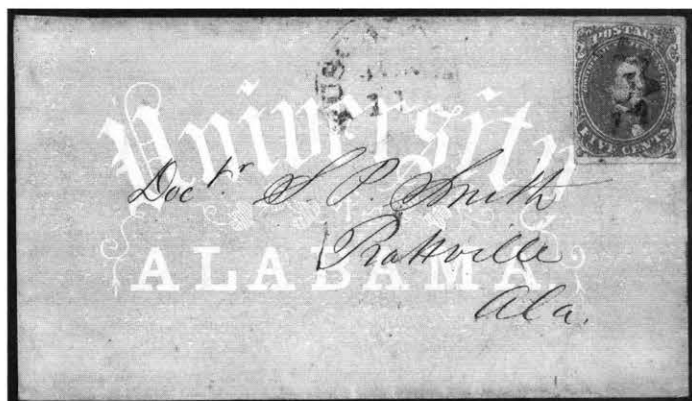 POSTAGE
FIVE CENTS
University
OF
ALABAMA
Doctr. S. P. Smith
Prattville
Ala.